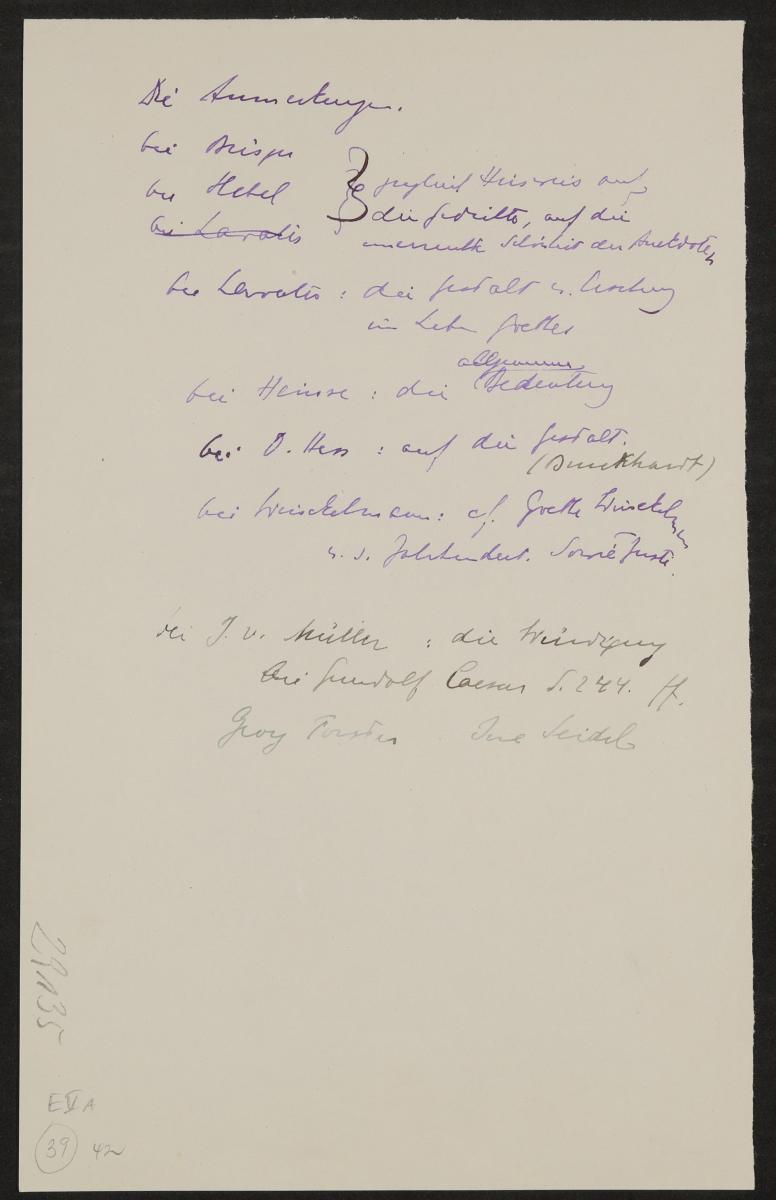 Die Anmerkungen.
bei
bei Hebel } Hinweis auf
bei Lavater die Gedichte, auf die
Schönheit der Anekdoten
bei Lavater: die Gestalt u.
im Leben Goethes
allgemeine
bei Heinse: die Bedeutung
bei D. Hess: auf die Gestalt.
(Burckhardt)
bei Winckelmann: cf. Goethe Winckelmann
u. s. Jahrhundert. Sowie Justi.
bei J. v. Müller: die Würdigung
bei Gundolf Caesar S. 244. ff.
Georg Forster Ina Seidel
29135
E V A
39 42